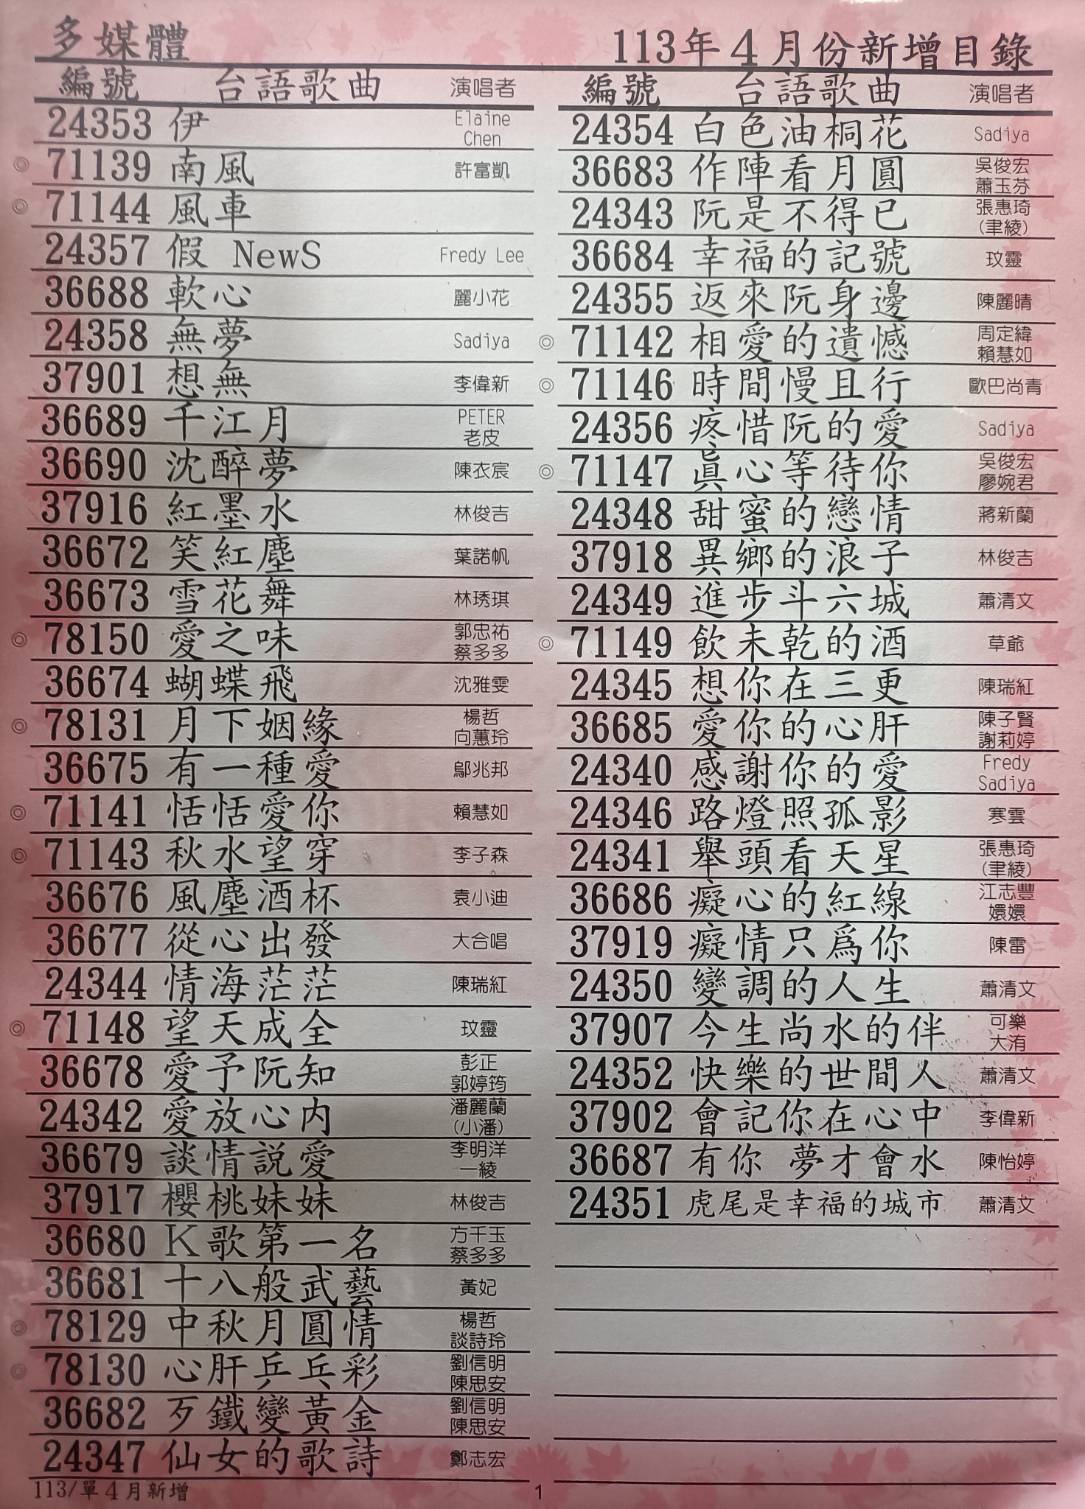 多媒體 113年4月份新增目錄
編號 台語歌曲 演唱者
24353 伊 Elaine Chen
◎ 71139 南風 許富凱
◎ 71144 風車
24357 假 NewS Fredy Lee
36688 軟心 麗小花
24358 無夢 Sadiya
37901 想無 李偉新
36689 千江月 PETER 老皮
36690 沈醉夢 陳衣宸
37916 紅墨水 林俊吉
36672 笑紅塵 葉諾帆
36673 雪花舞 林琇琪
◎ 78150 愛之味 郭忠祐 蔡多多
36674 蝴蝶飛 沈雅雯
◎ 78131 月下姻緣 楊哲 向蕙玲
36675 有一種愛 鄔兆邦
◎ 71141 恬恬愛你 賴慧如
◎ 71143 秋水望穿 李子森
36676 風塵酒杯 袁小迪
36677 從心出發 大合唱
24344 情海茫茫 陳瑞紅
◎ 71148 望天成全 玟靈
36678 愛予阮知 彭正 郭婷筠
24342 愛放心內 潘麗蘭 (小潘)
36679 談情説愛 李明洋 一綾
37917 櫻桃妹妹 林俊吉
36680 K歌第一名 方千玉 蔡多多
36681 十八般武藝 黃妃
◎ 78129 中秋月圓情 楊哲 談詩玲
◎ 78130 心肝乒乓彩 劉信明 陳思安
36682 歹鐵變黃金 劉信明 陳思安
24347 仙女的歌詩 鄭志宏
編號 台語歌曲 演唱者
24354 白色油桐花 Sadiya
36683 作陣看月圓 吳俊宏 蕭玉芬
24343 阮是不得已 張惠琦 (聿綾)
36684 幸福的記號 玟靈
24355 返來阮身邊 陳麗晴
◎ 71142 相愛的遺憾 周定緯 賴慧如
◎ 71146 時間慢且行 歐巴尚青
24356 疼惜阮的愛 Sadiya
◎ 71147 眞心等待你 吳俊宏 廖婉君
24348 甜蜜的戀情 蔣新蘭
37918 異鄉的浪子 林俊吉
24349 進步斗六城 蕭清文
◎ 71149 飲未乾的酒 草爺
24345 想你在三更 陳瑞紅
36685 愛你的心肝 陳子賢 謝莉婷
24340 感謝你的愛 Fredy Sadiya
24346 路燈照孤影 寒雲
24341 舉頭看天星 張惠琦 (聿綾)
36686 癡心的紅線 江志豐 嬛嬛
37919 癡情只爲你 陳雷
24350 變調的人生 蕭清文
37907 今生尚水的伴 可樂 大洧
24352 快樂的世間人 蕭清文
37902 會記你在心中 李偉新
36687 有你 夢才會水 陳怡婷
24351 虎尾是幸福的城市 蕭清文
113/單4月新增 1